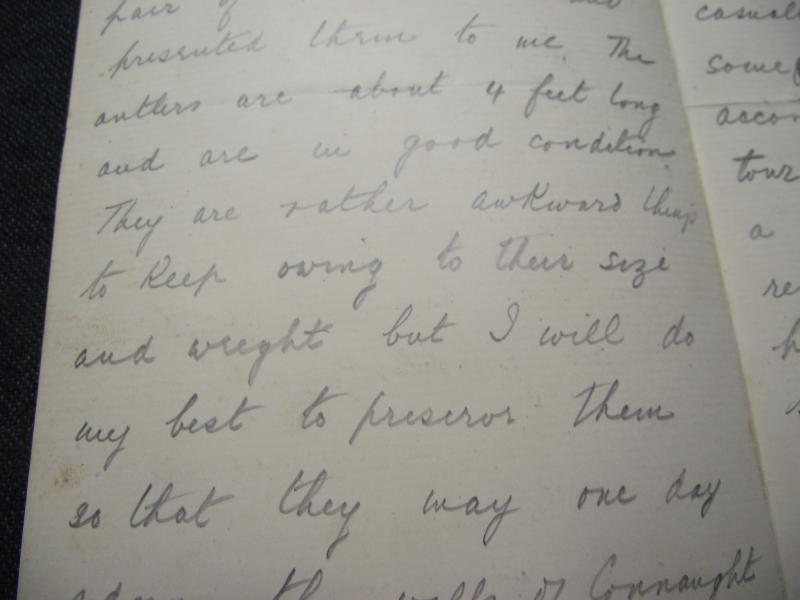 pair of
presented them to me. The
antlers are about 4 feet long
and are in good condition.
They are rather awkward things
to keep owing to their size
and weight but I will do
my best to preserve them
so that they may one day
adorn the walls of Connaught
some
a